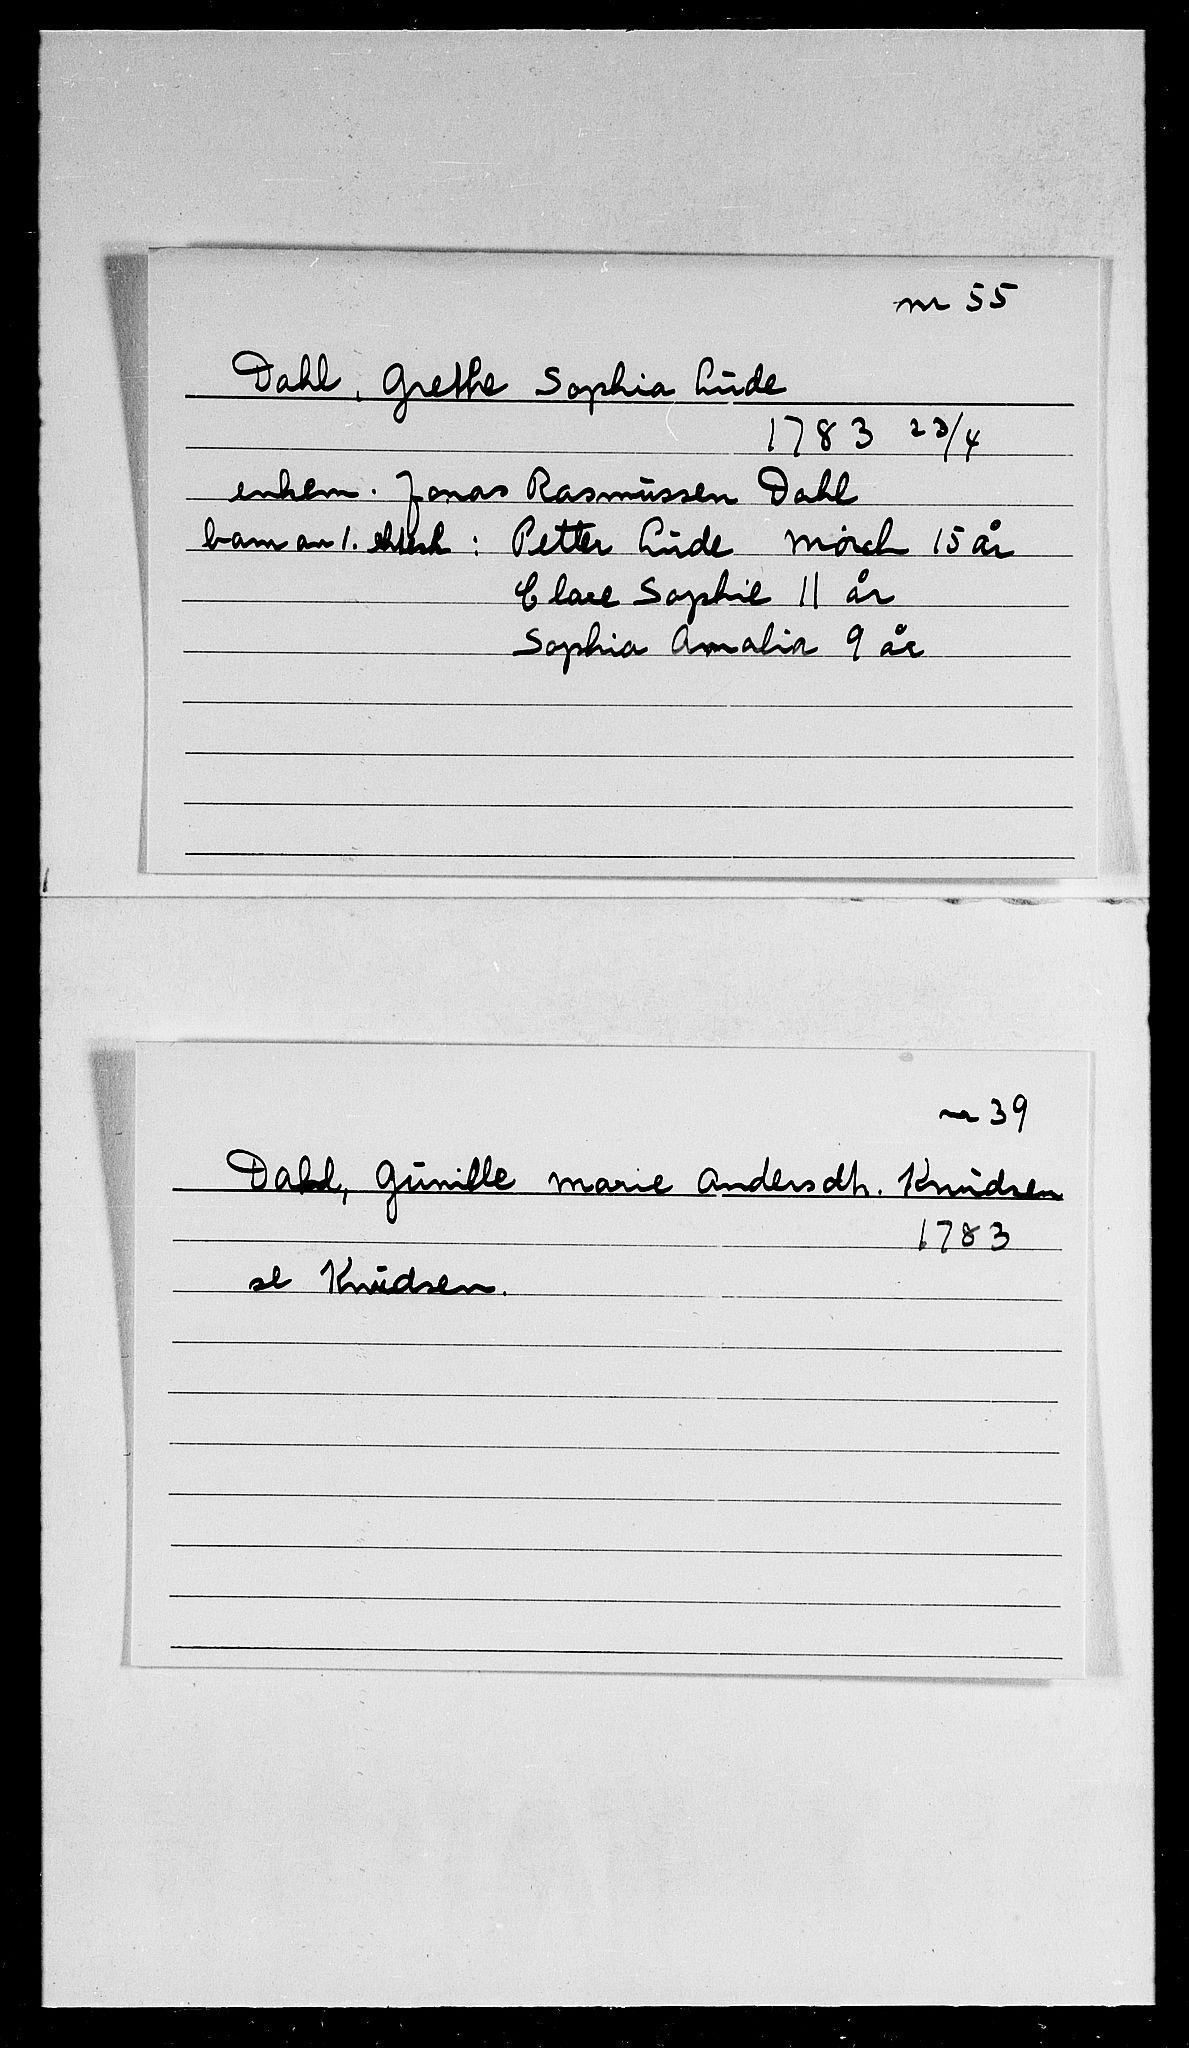 nr 55
Dahl, Grethe Sophia Lüde
1783 23/4
enkem. Jonas Rasmüssen Dahl
barn av 1. ektesk: Petter Lüde Mörch 15 år
Clare Sophie 11 år
Sophia Amalia 9 år
nr 39
Dahl, Günille Marie Andersdtr. Knüdsen
1783
se Knüdsen.